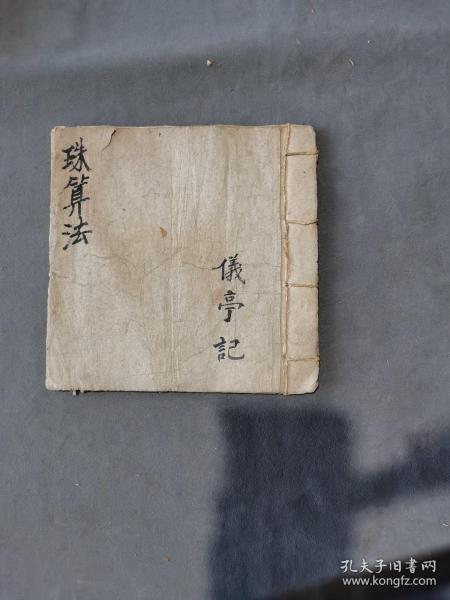 珠算法
儀亭記
孔夫子旧书网
www.kongfz.com